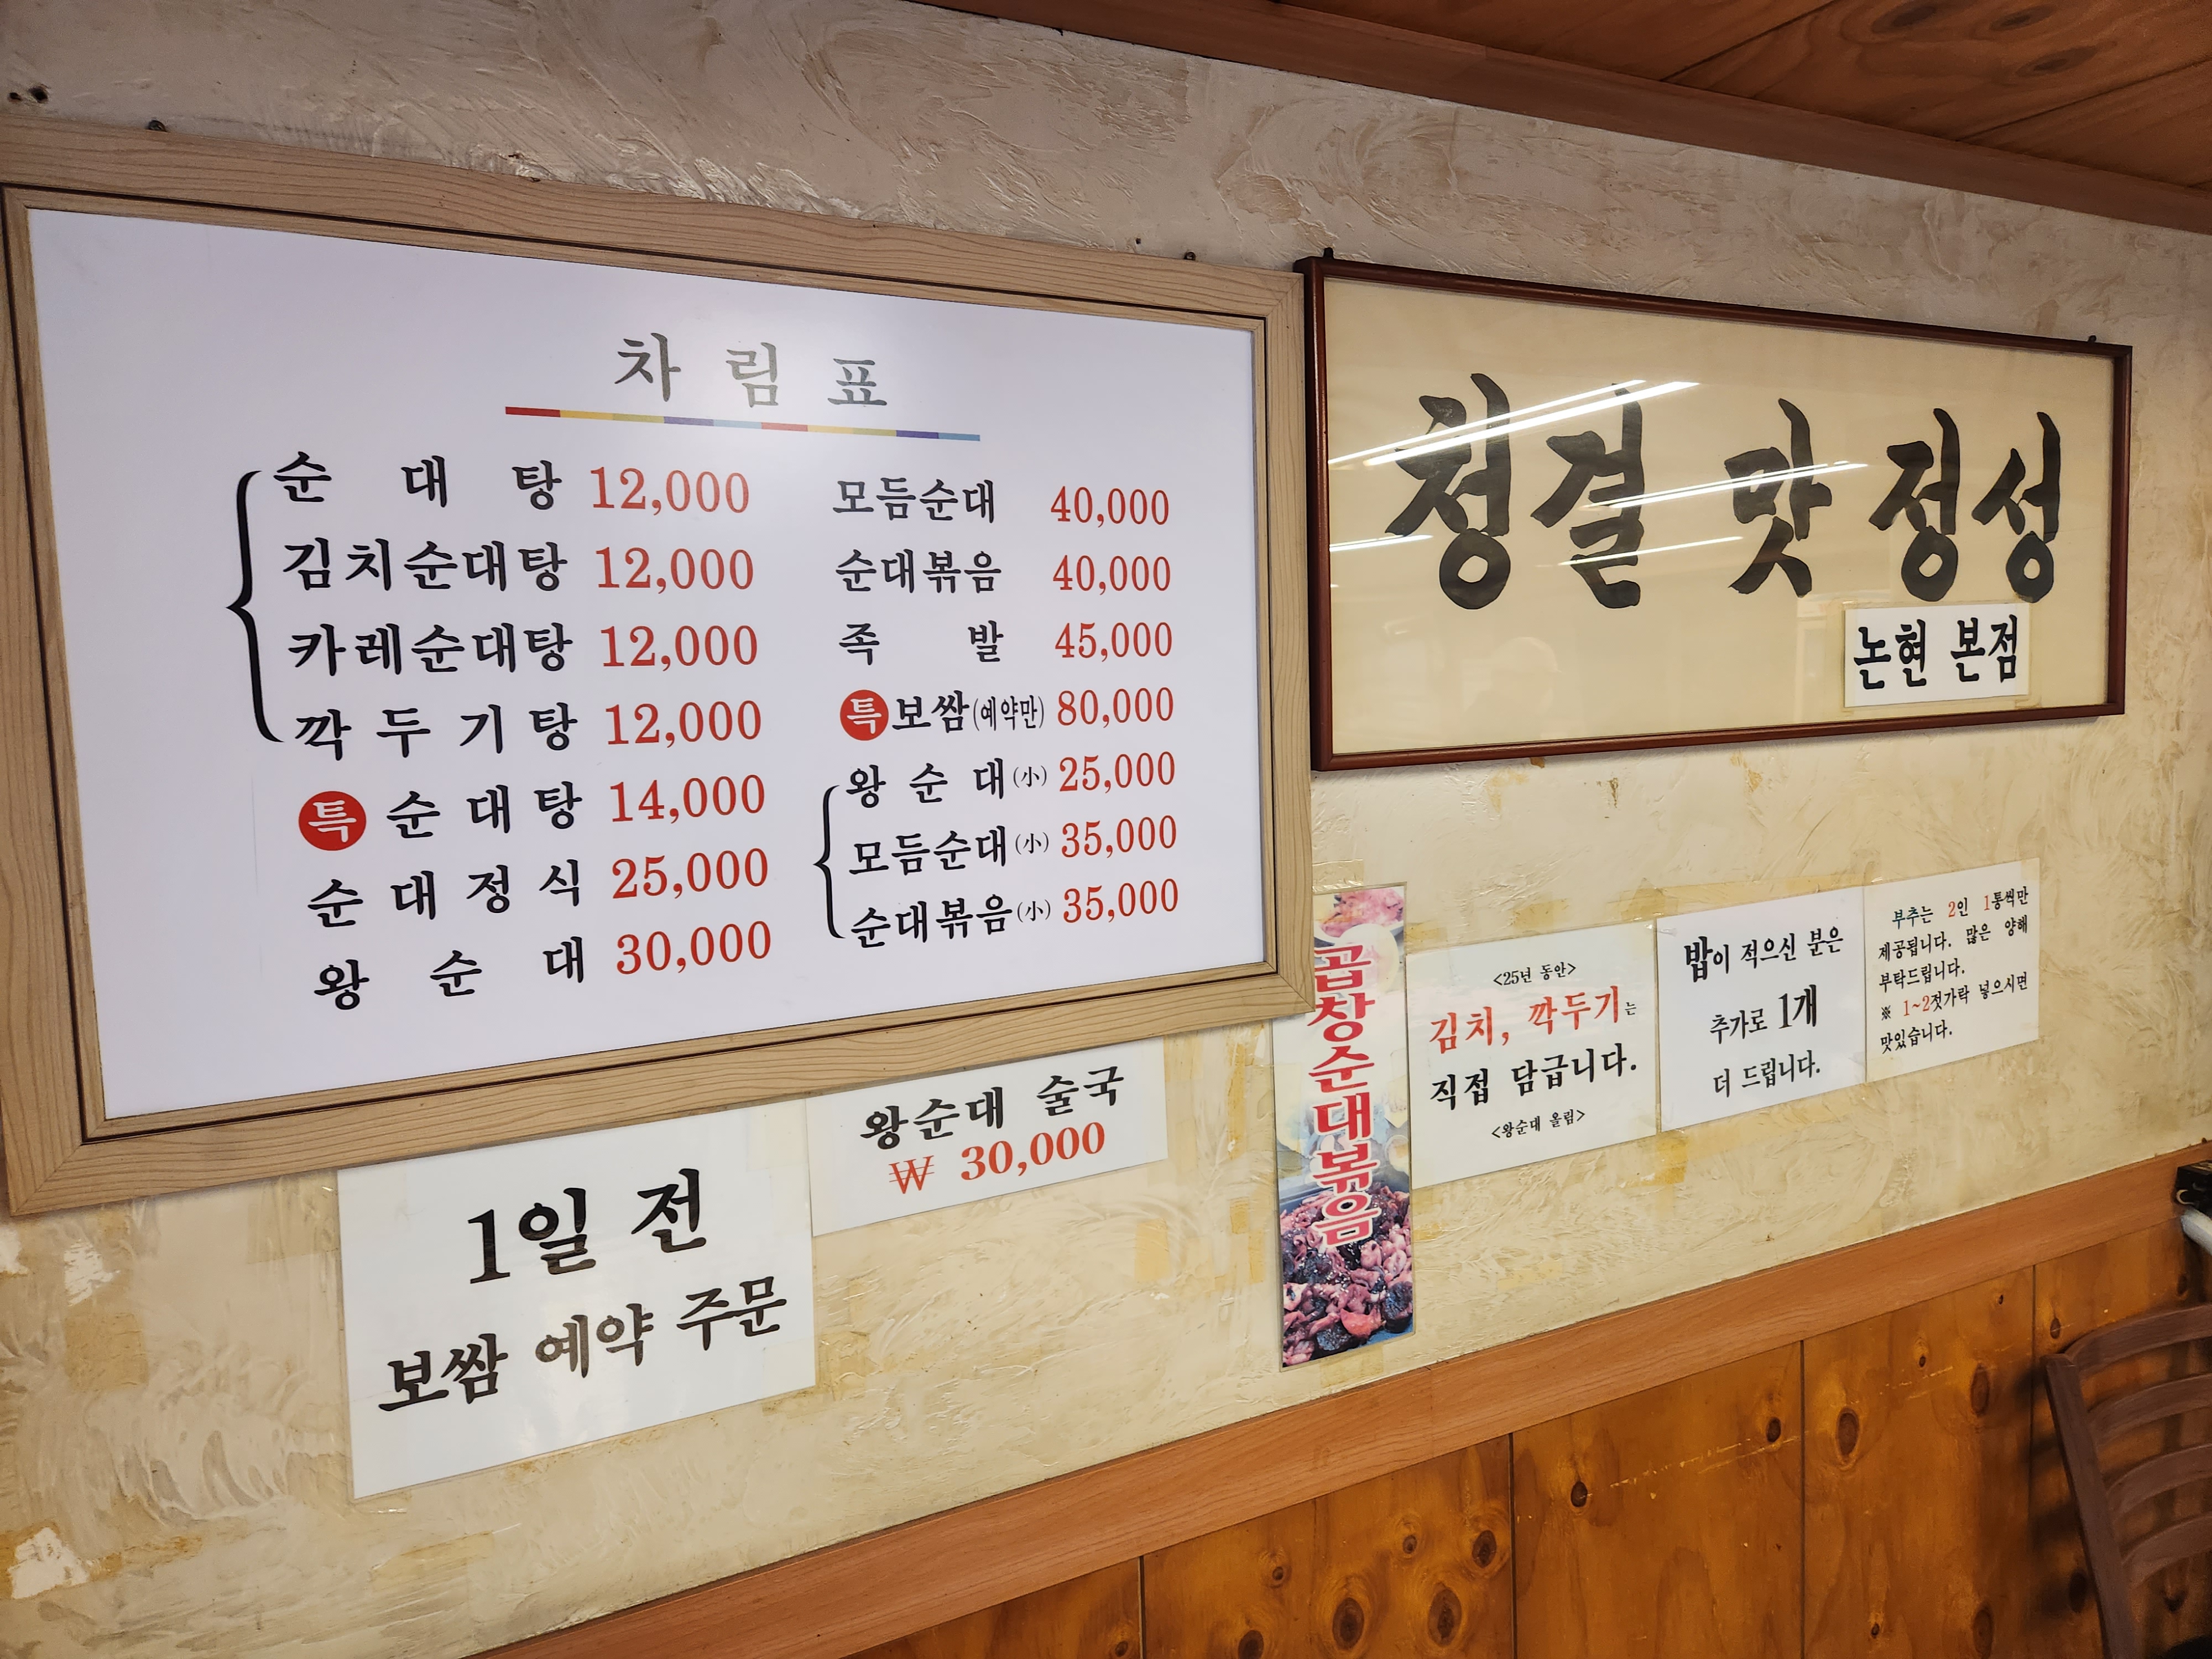 차림표
순대탕 12,000
김치순대탕 12,000
카레순대탕 12,000
깍두기탕 12,000
특 순대탕 14,000
순대정식 25,000
왕순대 30,000
모듬순대 40,000
순대볶음 40,000
족발 45,000
특 보쌈(예약만) 80,000
왕순대(小) 25,000
모듬순대(小) 35,000
순대볶음(小) 35,000
청결 맛 정성
논현 본점
1일 전
보쌈 예약 주문
왕순대 술국
₩ 30,000
곱창순대볶음
<25년 동안>
김치, 깍두기는
직접 담급니다.
<왕순대 올림>
밥이 적으신 분은
추가로 1개
더 드립니다.
부추는 2인 1통씩만
제공됩니다. 많은 양해
부탁드립니다.
※ 1~2젓가락 넣으시면
맛있습니다.